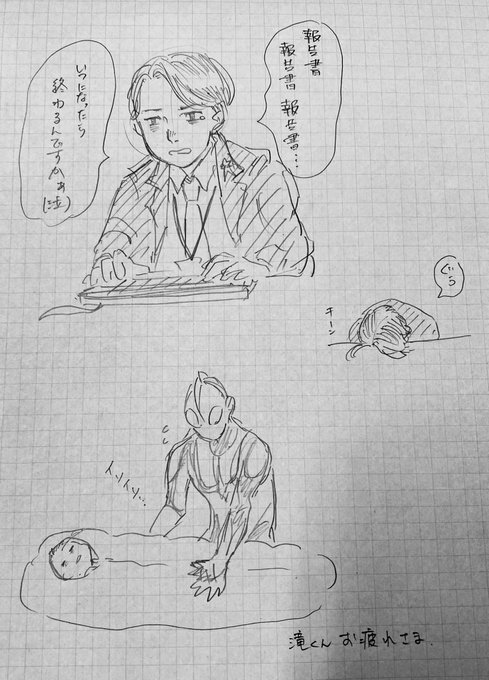 報告書
報告書 報告書…
いつになったら
終わるんですかぁ
(泣)
ぐぅ
キーン
イソイソ…
滝くん お疲れさま.